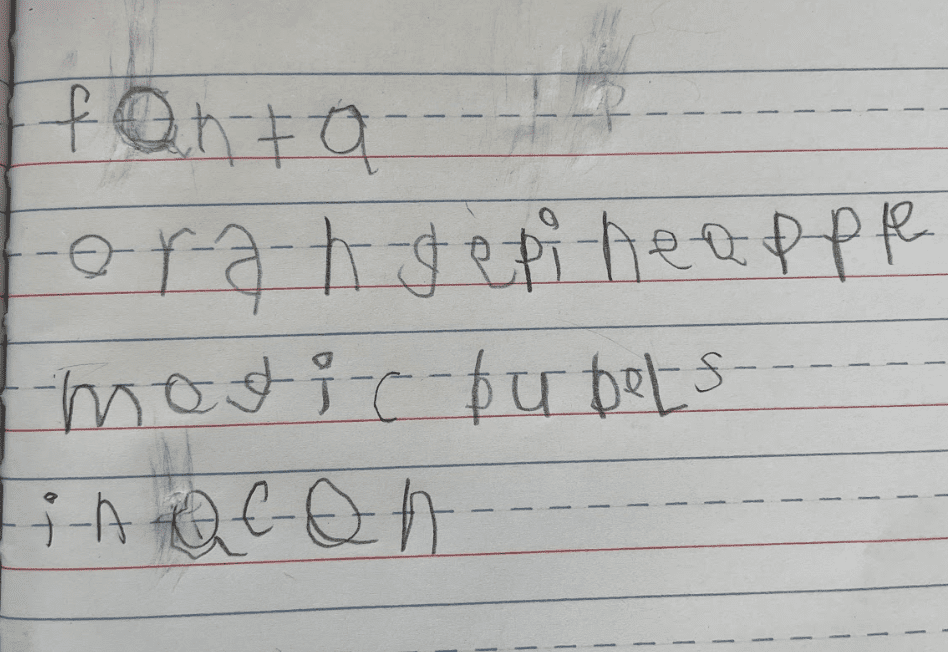 fanta
orangepineapple
magic bubels
in a can